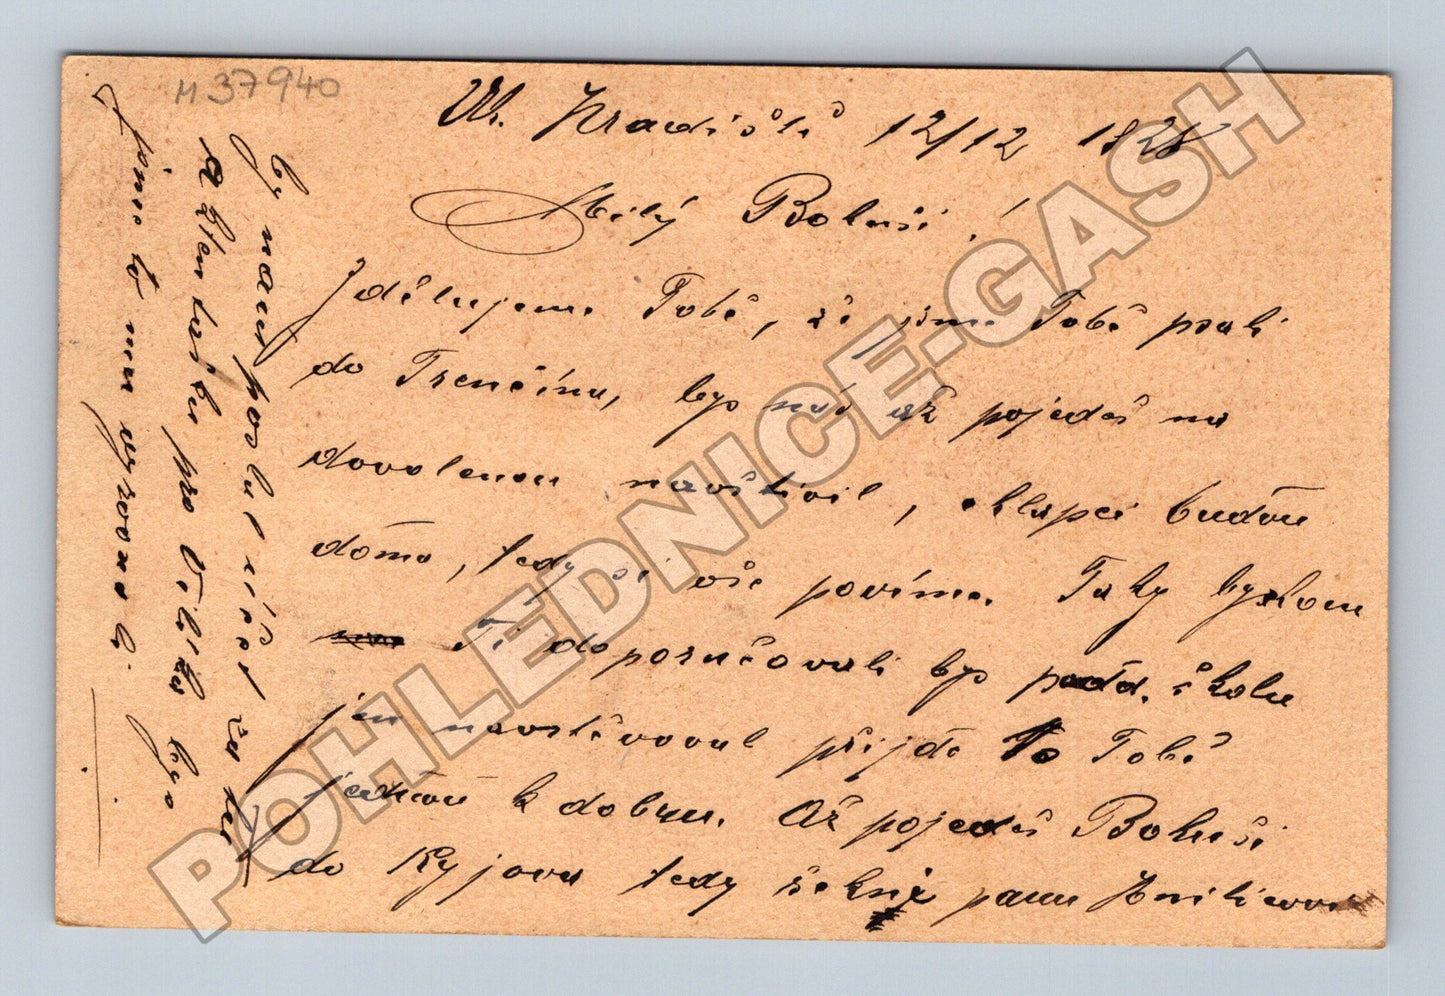 M 37940
Uh. Hradiště 12/12 1928
Milý Boluši!
Zdělujeme Tobě, že jsme Tobě psali
do Trenčína, bys nás až pojedeš na
dovolenou navštívil, chlapci budou
doma, tedy si vše povíme. Taky bychom
Ti doporučovali bys podd. školu
jen navštěvoval přijde to Tobě
jednou k dobru. Až pojedeš Boluši
do Kyjova tedy řekni panu
by nám poslal účet za ten
a bys
jsme to mu vyrovnali.
POHLEDNICE-GASH